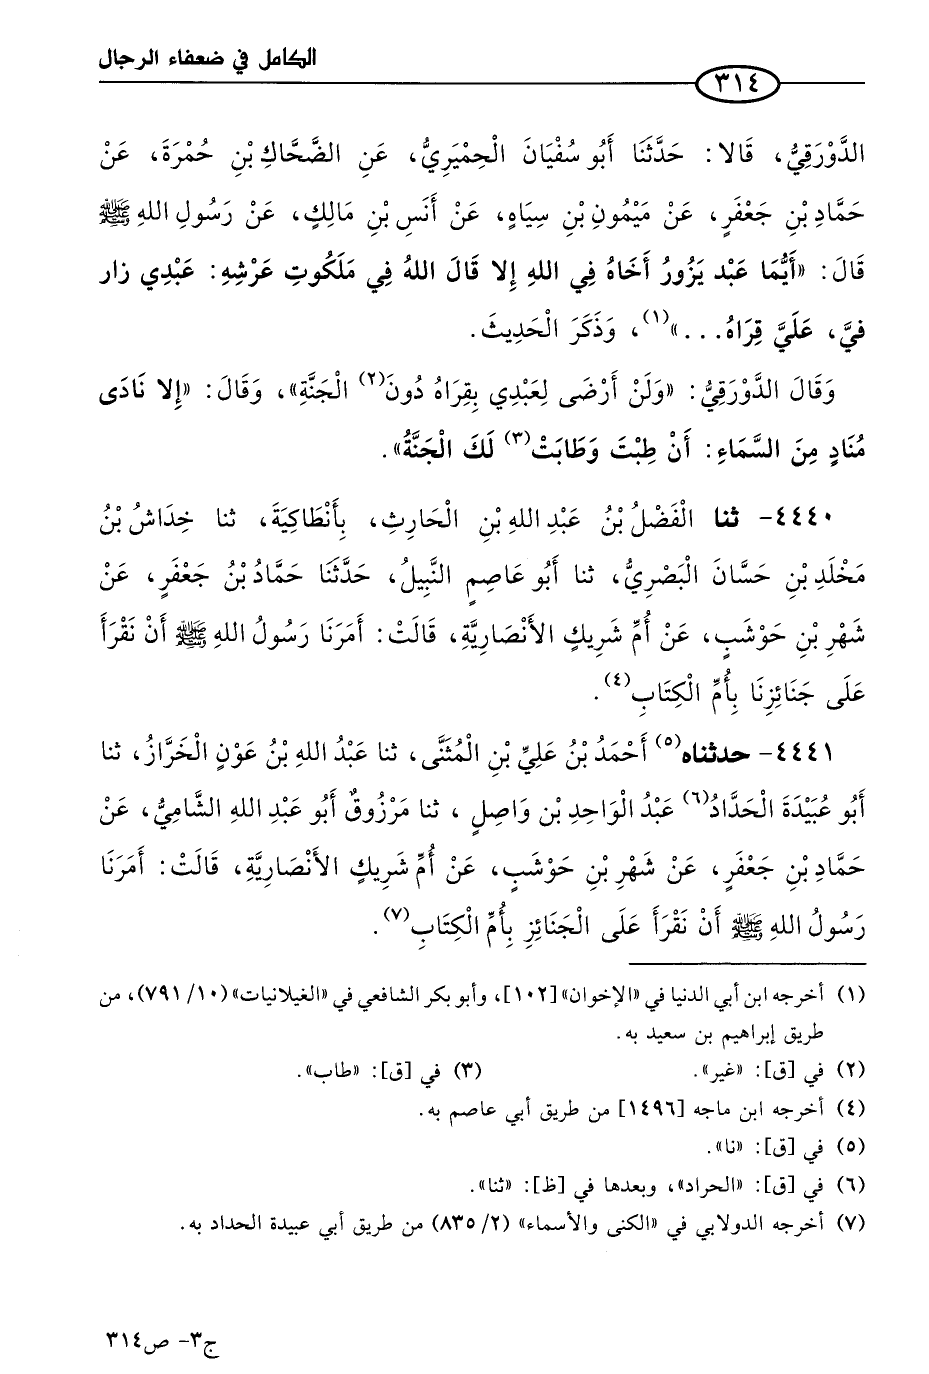 الكامل في ضعفاء الرجال
٣١٤
الدَّوْرَقِيُّ، قَالا: حَدَّثَنَا أَبُو سُفْيَانَ الْحِمْيَرِيُّ، عَنِ الضَّحَّاكِ بْنِ حُمْرَةَ، عَنْ
حَمَّادِ بْنِ جَعْفَرٍ، عَنْ مَيْمُونِ بْنِ سِيَاهٍ، عَنْ أَنَسِ بْنِ مَالِكٍ، عَنْ رَسُولِ اللهِ ﷺ
قَالَ: «أَيُّمَا عَبْد يَزُورُ أَخَاهُ فِي اللهِ إِلا قَالَ اللهُ فِي مَلَكُوتِ عَرْشِهِ: عَبْدِي زار
فيَّ، عَلَيَّ قِرَاهُ...»(١)، وَذَكَرَ الْحَدِيثَ.
وَقَالَ الدَّوْرَقِيُّ: «وَلَنْ أَرْضَى لِعَبْدِي بِقِرَاهُ دُونَ(٢) الْجَنَّةِ»، وَقَالَ: «إِلا نَادَى
مُنَادٍ مِنَ السَّمَاءِ: أَنْ طِبْتَ وَطَابَتْ(٣) لَكَ الْجَنَّةُ».
٤٤٤٠- ثنا الْفَضْلُ بْنُ عَبْدِ اللهِ بْنِ الْحَارِثِ، بِأَنْطَاكِيَةَ، ثنا خِدَاشُ بْنُ
مَخْلَدِ بْنِ حَسَّانَ الْبَصْرِيُّ، ثنا أَبُو عَاصِمٍ النَّبِيلُ، حَدَّثَنَا حَمَّادُ بْنُ جَعْفَرٍ، عَنْ
شَهْرِ بْنِ حَوْشَبٍ، عَنْ أُمِّ شَرِيكٍ الأَنْصَارِيَّةِ، قَالَتْ: أَمَرَنَا رَسُولُ اللهِ ﷺ أَنْ نَقْرَأَ
عَلَى جَنَائِزِنَا بِأُمِّ الْكِتَابِ(٤).
٤٤٤١- حدثناه(٥) أَحْمَدُ بْنُ عَلِيِّ بْنِ الْمُثَنَّى، ثنا عَبْدُ اللهِ بْنُ عَوْنٍ الْخَرَّازُ، ثنا
أَبُو عُبَيْدَةَ الْحَدَّادُ(٦) عَبْدُ الْوَاحِدِ بْن وَاصِلٍ ، ثنا مَرْزُوقٌ أَبُو عَبْدِ اللهِ الشَّامِيُّ، عَنْ
حَمَّادِ بْنِ جَعْفَرٍ، عَنْ شَهْرِ بْنِ حَوْشَبٍ، عَنْ أُمِّ شَرِيكٍ الأَنْصَارِيَّةِ، قَالَتْ: أَمَرَنَا
رَسُولُ اللهِ ﷺ أَنْ نَقْرَأَ عَلَى الْجَنَائِزِ بِأُمِّ الْكِتَابِ(٧).
(١) أخرجه ابن أبي الدنيا في «الإخوان» [١٠٢]، وأبو بكر الشافعي في «الغيلانيات» (١٠/ ٧٩١)، من
طريق إبراهيم بن سعيد به.
(٢) في [ق]: «غير». (٣) في [ق]: «طاب».
(٤) أخرجه ابن ماجه [١٤٩٦] من طريق أبي عاصم به.
(٥) في [ق]: «نا».
(٦) في [ق]: «الحراد»، وبعدها في [ظ]: «ثنا».
(٧) أخرجه الدولابي في «الكنى والأسماء» (٢/ ٨٣٥) من طريق أبي عبيدة الحداد به.
ج٣- ص٣١٤